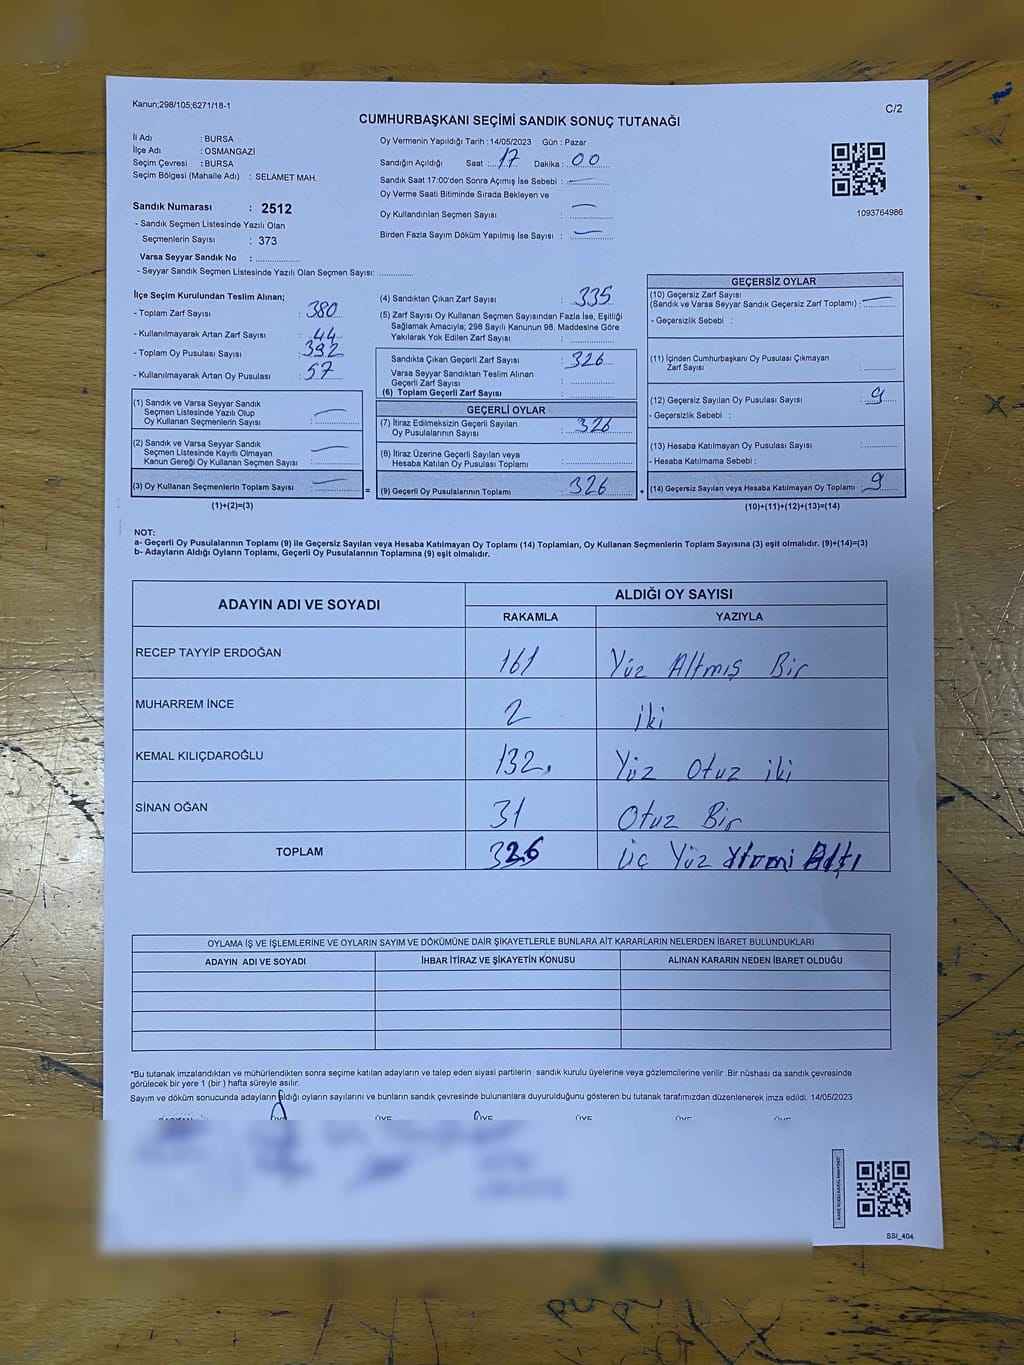 Kanun;298/105;6271/18-1
C/2
CUMHURBAŞKANI SEÇİMİ SANDIK SONUÇ TUTANAĞI
İl Adı : BURSA
İlçe Adı : OSMANGAZİ
Seçim Çevresi : BURSA
Seçim Bölgesi (Mahalle Adı) : SELAMET MAH.
Sandık Numarası : 2512
- Sandık Seçmen Listesinde Yazılı Olan
Seçmenlerin Sayısı : 373
Varsa Seyyar Sandık No : ..............
- Seyyar Sandık Seçmen Listesinde Yazılı Olan Seçmen Sayısı: ............
Oy Vermenin Yapıldığı Tarih :14/05/2023 Gün : Pazar
Sandığın Açıldığı Saat : 17 Dakika : 00
Sandık Saat 17:00'den Sonra Açımış İse Sebebi : —
Oy Verme Saati Bitiminde Sırada Bekleyen ve
Oy Kullandırılan Seçmen Sayısı : —
Birden Fazla Sayım Döküm Yapılmış İse Sayısı : —
1093764986
İlçe Seçim Kurulundan Teslim Alınan;
- Toplam Zarf Sayısı : 380
- Kullanılmayarak Artan Zarf Sayısı : 44
- Toplam Oy Pusulası Sayısı : 392
- Kullanılmayarak Artan Oy Pusulası : 57
(1) Sandık ve Varsa Seyyar Sandık
Seçmen Listesinde Yazılı Olup
Oy Kullanan Seçmenlerin Sayısı : —
(2) Sandık ve Varsa Seyyar Sandık
Seçmen Listesinde Kayıtlı Olmayan
Kanun Gereği Oy Kullanan Seçmen Sayısı : —
(3) Oy Kullanan Seçmenlerin Toplam Sayısı : —
(1)+(2)=(3)
(4) Sandıktan Çıkan Zarf Sayısı : 335
(5) Zarf Sayısı Oy Kullanan Seçmen Sayısından Fazla İse, Eşitliği
Sağlamak Amacıyla; 298 Sayılı Kanunun 98. Maddesine Göre
Yakılarak Yok Edilen Zarf Sayısı :
Sandıkta Çıkan Geçerli Zarf Sayısı : 326
Varsa Seyyar Sandıktan Teslim Alınan
Geçerli Zarf Sayısı :
(6) Toplam Geçerli Zarf Sayısı :
GEÇERLİ OYLAR
(7) İtiraz Edilmeksizin Geçerli Sayılan
Oy Pusulalarının Sayısı : 326
(8) İtiraz Üzerine Geçerli Sayılan veya
Hesaba Katılan Oy Pusulası Toplamı :
(9) Geçerli Oy Pusulalarının Toplamı : 326
= +
GEÇERSİZ OYLAR
(10) Geçersiz Zarf Sayısı
(Sandık ve Varsa Seyyar Sandık Geçersiz Zarf Toplamı) : —
- Geçersizlik Sebebi :
(11) İçinden Cumhurbaşkanı Oy Pusulası Çıkmayan
Zarf Sayısı :
(12) Geçersiz Sayılan Oy Pusulası Sayısı : 9
- Geçersizlik Sebebi :
(13) Hesaba Katılmayan Oy Pusulası Sayısı :
- Hesaba Katılmama Sebebi :
(14) Geçersiz Sayılan veya Hesaba Katılmayan Oy Toplamı : 9
(10)+(11)+(12)+(13)=(14)
NOT:
a- Geçerli Oy Pusulalarının Toplamı (9) ile Geçersiz Sayılan veya Hesaba Katılmayan Oy Toplamı (14) Toplamları, Oy Kullanan Seçmenlerin Toplam Sayısına (3) eşit olmalıdır. (9)+(14)=(3)
b- Adayların Aldığı Oyların Toplamı, Geçerli Oy Pusulalarının Toplamına (9) eşit olmalıdır.
ADAYIN ADI VE SOYADI ALDIĞI OY SAYISI
RAKAMLA YAZIYLA
RECEP TAYYİP ERDOĞAN 161 Yüz Altmış Bir
MUHARREM İNCE 2 iki
KEMAL KILIÇDAROĞLU 132. Yüz Otuz iki
SİNAN OĞAN 31 Otuz Bir
TOPLAM 326 Üç Yüz Yirmi Altı
OYLAMA İŞ VE İŞLEMLERİNE VE OYLARIN SAYIM VE DÖKÜMÜNE DAİR ŞİKAYETLERLE BUNLARA AİT KARARLARIN NELERDEN İBARET BULUNDUKLARI
ADAYIN ADI VE SOYADI İHBAR İTİRAZ VE ŞİKAYETİN KONUSU ALINAN KARARIN NEDEN İBARET OLDUĞU
*Bu tutanak imzalandıktan ve mühürlendikten sonra seçime katılan adayların ve talep eden siyasi partilerin sandık kurulu üyelerine veya gözlemcilerine verilir .Bir nüshası da sandık çevresinde
görülecek bir yere 1 (bir ) hafta süreyle asılır.
Sayım ve döküm sonucunda adayların aldığı oyların sayılarını ve bunların sandık çevresinde bulunanlara duyurulduğunu gösteren bu tutanak tarafımızdan düzenlenerek imza edildi. 14/05/2023
ÜYE ÜYE ÜYE ÜYE ÜYE
SSI_404